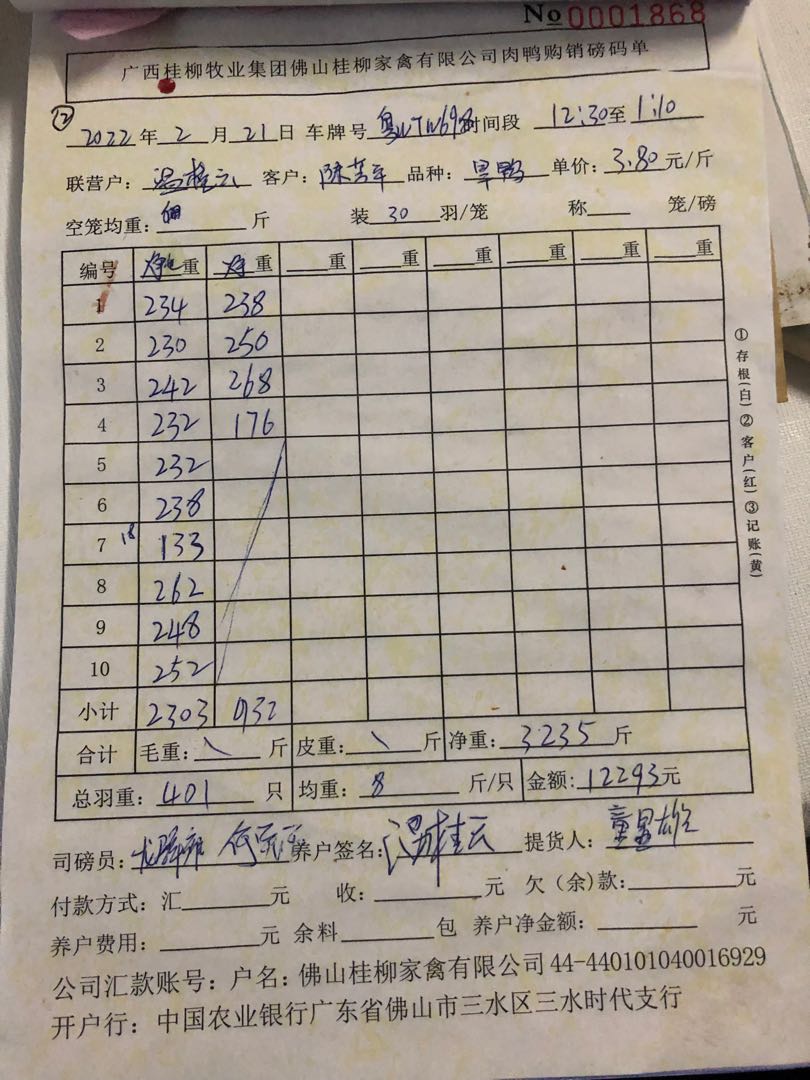 No 0001868
广西桂柳牧业集团佛山桂柳家禽有限公司肉鸭购销磅码单
⑫
2022年2月21日 车牌号 时间段 12:30至1:10
联营户：温桂云 客户： 品种：旱鸭 单价：3.80元/斤
空笼均重： 斤 装30羽/笼 称 笼/磅
编号 重 重 重 重 重 重 重
1 234 238
2 230 250
3 242 268
4 232 176
5 232
6 238
7 18 133
8 262
9 248
10 252
小计 2303 932
合计 毛重：\ 斤 皮重：\ 斤 净重：3235斤
总羽重：401 只 均重：8 斤/只 金额:12293元
司磅员： 养户签名：温桂云 提货人：
付款方式：汇 元 收： 元 欠（余）款： 元
养户费用： 元 余料 包 养户净金额： 元
公司汇款账号：户名：佛山桂柳家禽有限公司44-440101040016929
开户行：中国农业银行广东省佛山市三水区三水时代支行
①存根(白)②客户(红)③记账(黄)